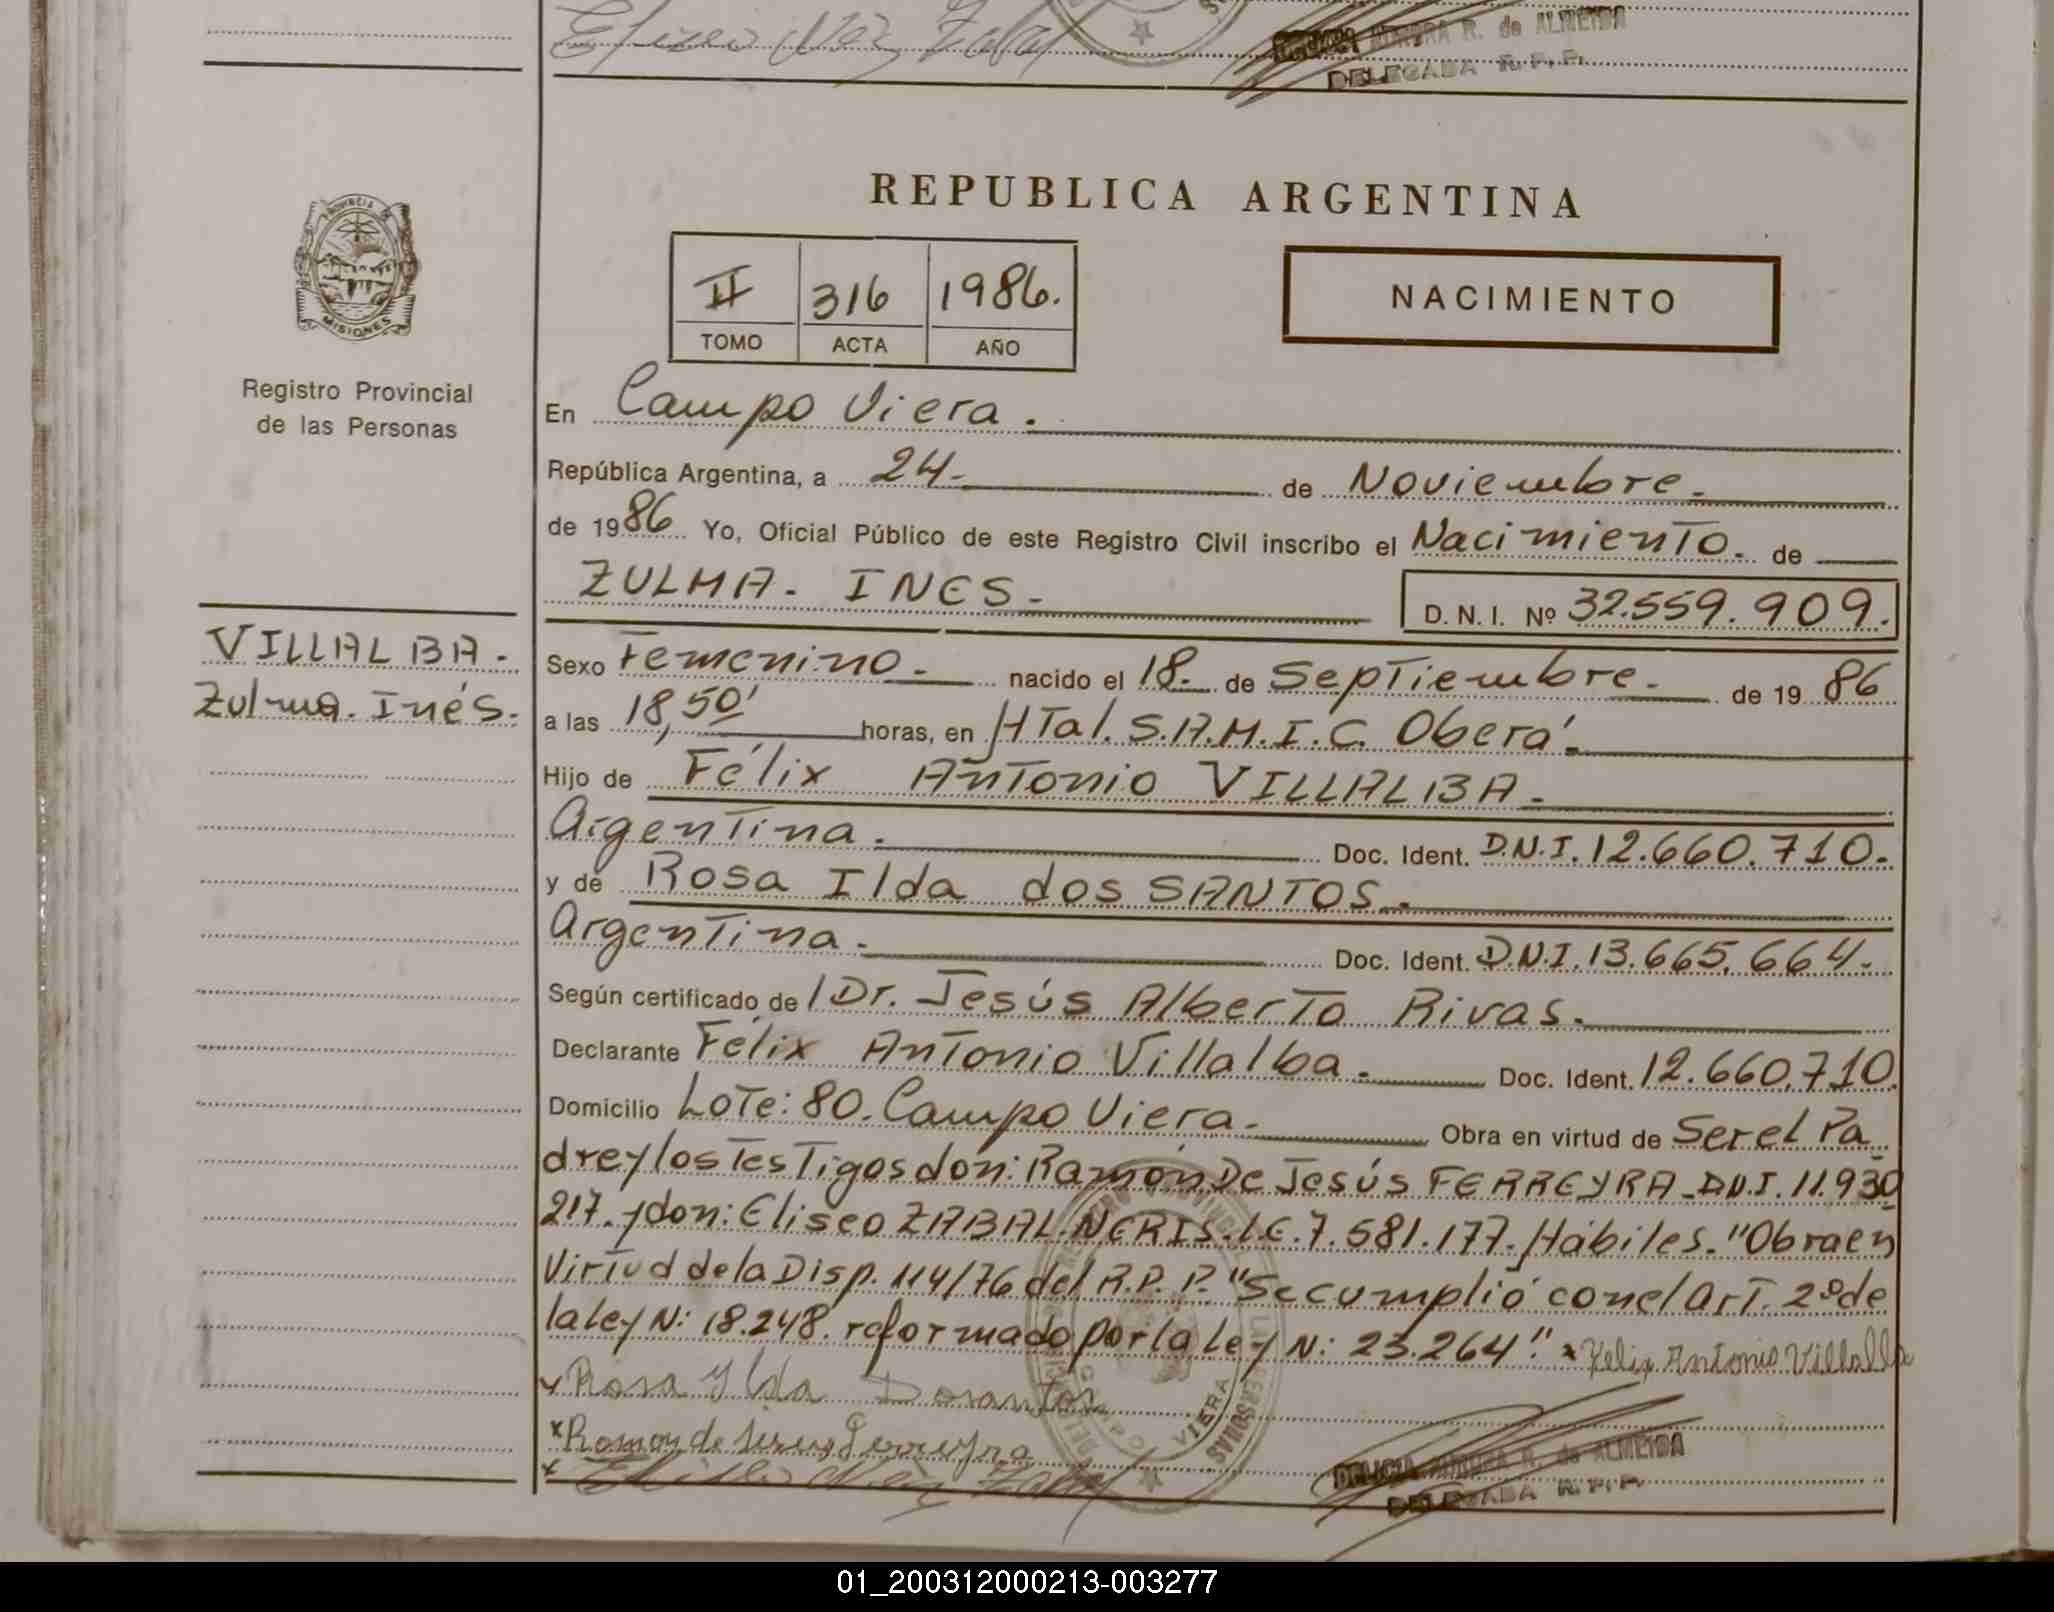 DELICIA AURORA R. de ALMEIDA
DELEGADA R.P.P.
REPUBLICA ARGENTINA
II 316 1986.
TOMO ACTA AÑO
NACIMIENTO
PROVINCIA DE
MISIONES
Registro Provincial
de las Personas
En Campo Viera.
República Argentina, a 24.- de Noviembre.
de 1986 Yo, Oficial Público de este Registro Civil inscribo el Nacimiento. de
ZULMA. INES.- D. N. I. Nº 32.559.909.
VILLALBA.
Zulma. Inés.
Sexo Femenino.- nacido el 18. de Septiembre.- de 19 86
a las 18,50' horas, en HTal. S.A.M.I.C. Oberá.-
Hijo de Félix Antonio VILLALBA.-
Argentina. Doc. Ident. D.N.I. 12.660.710.
y de Rosa Ilda dos SANTOS.-
Argentina. Doc. Ident. D.N.I. 13.665.664.
Según certificado de Dr. Jesús Alberto Rivas.
Declarante Félix Antonio Villalba. Doc. Ident. 12.660.710.
Domicilio Lote: 80. Campo Viera. Obra en virtud de Ser el Pa
dre y los Testigos don: Ramón De Jesús FERREYRA.D.N.I. 11.930
217. y don: Eliseo ZABAL NERIS. L.E. 7.581.177. Hábiles. "Obra en
Virtud de la Disp. 114/76 del R.P.P. "Se cumplió con el Art. 2º de
la ley N: 18.248. reformado por la Ley N: 23.264". x Felix Antonio Villalba
x Rosa Ylda Dosantos
x Ramon de Jesus Ferreyra
x
DELICIA AURORA R. de ALMEIDA
DELEGADA R.P.P.
01_200312000213-003277